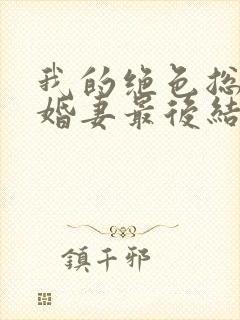 我的绝色总
婚妻最後結
鎮千邪